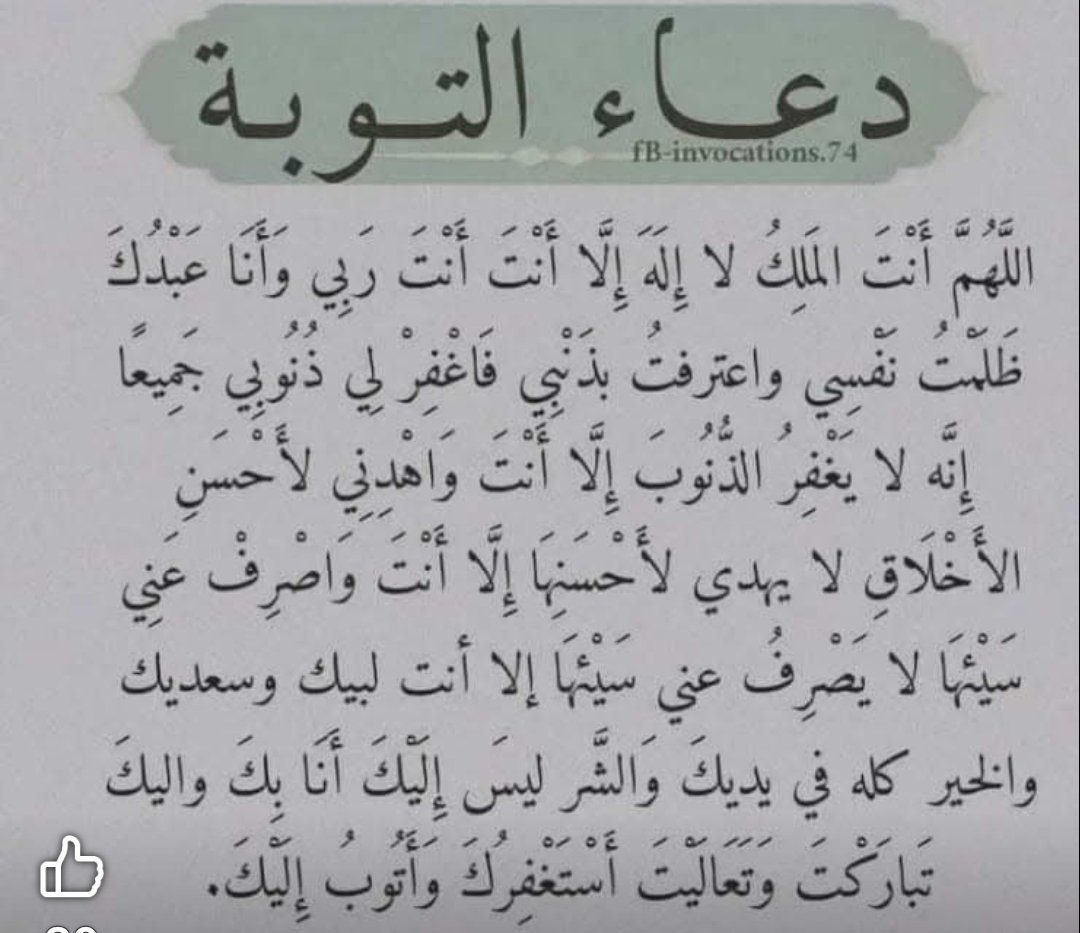 دعاء التوبة
fB-invocations.74
اللَّهُمَّ أَنْتَ المَلِكُ لا إِلَهَ إِلَّا أَنْتَ أَنْتَ رَبِي وَأَنَا عَبْدُكَ
ظَلَمْتُ نَفْسِي واعترفتُ بذَنْبِي فَاغْفِرْ لِي ذُنُوبِي جَمِيعًا
إِنَّه لا يَغْفِرُ الذُّنُوبَ إِلَّا أَنْتَ وَاهْدِنِي لأَحْسَنِ
الأَخْلَاقِ لا يهدي لأَحْسَنِهَا إِلَّا أَنْتَ وَاصْرِفْ عَنِي
سَيْئهَا لا يَصْرِفُ عني سَيْئهَا إلا أنت لبيك وسعديك
والخير كله في يديكَ وَالشَّر ليسَ إِلَيْكَ أَنَا بِكَ واليكَ
تَبارَكْتَ وَتَعَالَيْتَ أَسْتَغْفِرُكَ وَأَتُوبُ إِلَيْكَ.